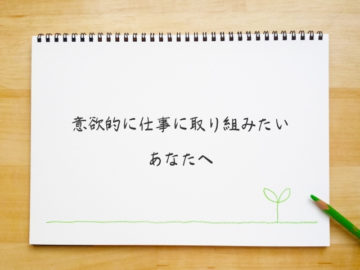 意欲的に仕事に取り組みたい
あなたへ